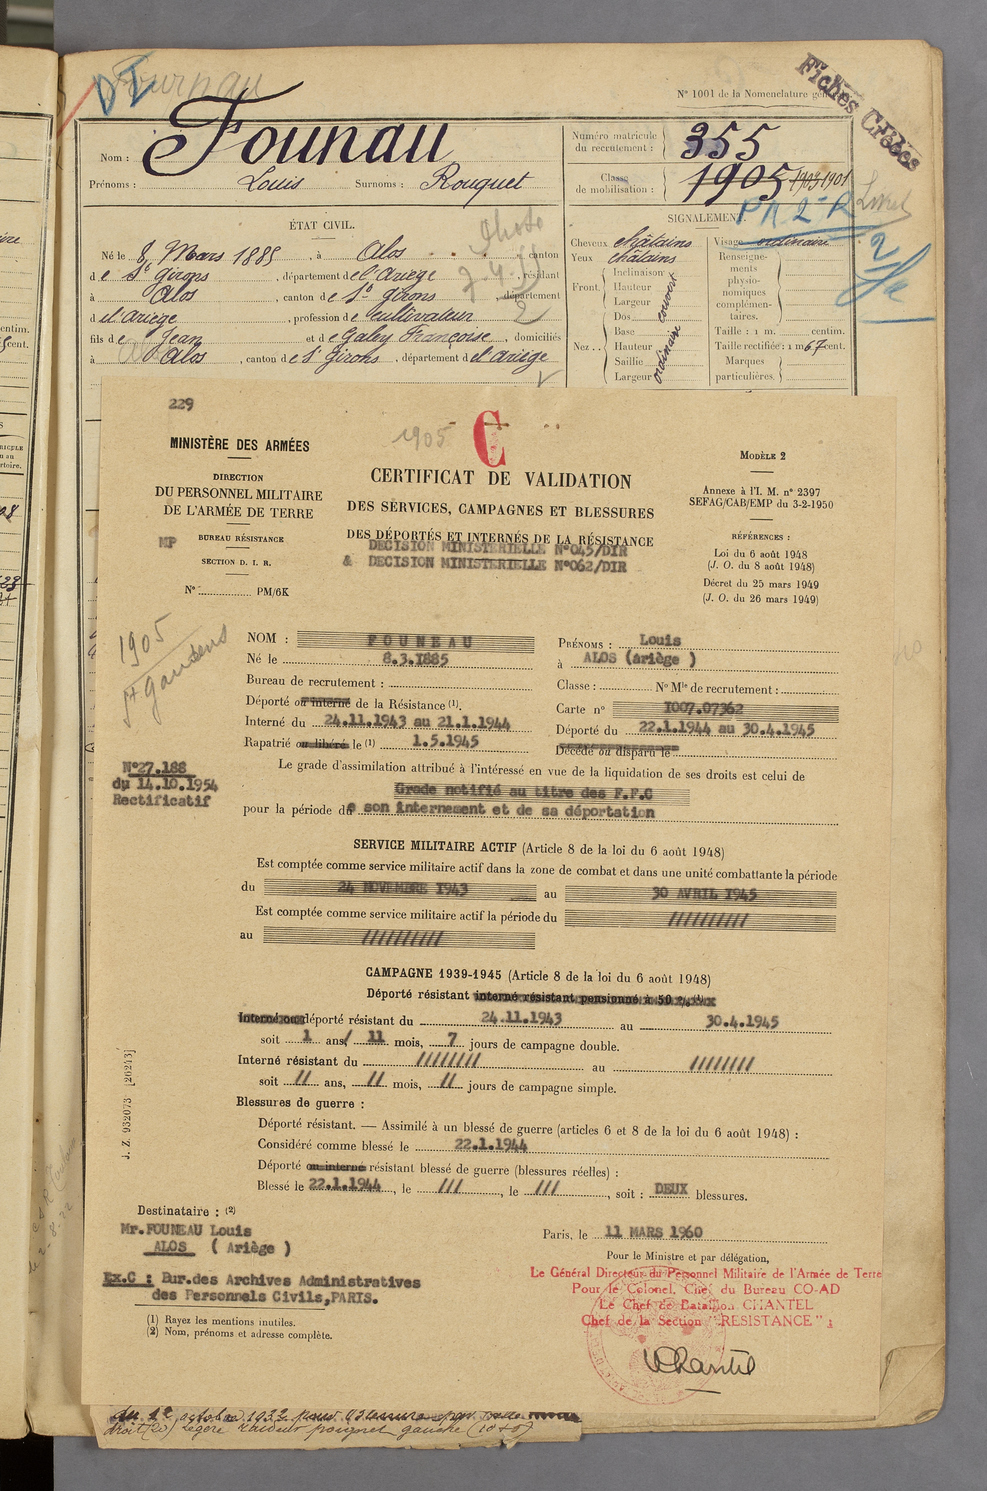 Fournau
DI
N° 1001 de la Nomenclature
Fiches Créées
Nom : Founau
Prénoms : Louis Surnoms : Rouquet
Numéro matricule du recrutement : 355
Classe de mobilisation : 1905 1903 1901
PA 2e R
Livret
ÉTAT CIVIL.
Photo
Né le 8 Mars 1885, à Alos, canton
de St Girons, département de l'Ariège, résidant
à Alos, canton de St Girons, département
d'Ariège, profession de Cultivateur
fils de Jean et de Galey Françoise, domiciliés
à Alos, canton de St Girons, département d'Ariège
SIGNALEMENT
Cheveux châtains
Yeux châtains
Front. Inclinaison
Hauteur
Largeur
couvert
Nez .. Dos
Base
Hauteur
Saillie
Largeur
ordinaire
Visage ordinaire
Renseignements physionomiques complémentaires.
Taille : 1 m. centim.
Taille rectifiée : 1 m 67 cent.
Marques particulières.
229
1905
C
MINISTÈRE DES ARMÉES
DIRECTION
DU PERSONNEL MILITAIRE
DE L'ARMÉE DE TERRE
MP BUREAU RÉSISTANCE
SECTION D. I. R.
N° PM/6K
CERTIFICAT DE VALIDATION
DES SERVICES, CAMPAGNES ET BLESSURES
DES DÉPORTÉS ET INTERNÉS DE LA RÉSISTANCE
DECISION MINISTERIELLE N°045/DIR
& DECISION MINISTERIELLE N°062/DIR
MODÈLE 2
Annexe à l'I. M. n° 2397
SEFAG/CAB/EMP du 3-2-1950
RÉFÉRENCES :
Loi du 6 août 1948
(J. O. du 8 août 1948)
Décret du 25 mars 1949
(J. O. du 26 mars 1949)
1905
St Gaudens
NOM : FOUNEAU PRÉNOMS : Louis
Né le 8.3.1885 à ALOS (Ariège )
Bureau de recrutement : Classe : N° Mle de recrutement :
Déporté ou interné de la Résistance (1). Carte n° I007.07362
Interné du 24.11.1943 au 21.1.1944 Déporté du 22.1.1944 au 30.4.1945
Rapatrié ou libéré le (1) 1.5.1945 Décédé ou disparu le
N°27.188
du 14.10.1954
Rectificatif
Le grade d'assimilation attribué à l'intéressé en vue de la liquidation de ses droits est celui de
Grade notifié au titre des F.F.C
pour la période de son internement et de sa déportation
SERVICE MILITAIRE ACTIF (Article 8 de la loi du 6 août 1948)
Est comptée comme service militaire actif dans la zone de combat et dans une unité combattante la période
du 24 NOVEMBRE 1943 au 30 AVRIL 1945
Est comptée comme service militaire actif la période du //////////
au //////////
CAMPAGNE 1939-1945 (Article 8 de la loi du 6 août 1948)
Déporté résistant interné résistant pensionné à 50 %
Interné ou déporté résistant du 24.11.1943 au 30.4.1945
soit 1 ans/ 11 mois, 7 jours de campagne double.
Interné résistant du //////// au ////////
soit // ans, // mois, // jours de campagne simple.
Blessures de guerre :
Déporté résistant. — Assimilé à un blessé de guerre (articles 6 et 8 de la loi du 6 août 1948) :
Considéré comme blessé le 22.1.1944
Déporté ou interné résistant blessé de guerre (blessures réelles) :
Blessé le 22.1.1944, le ///, le ///, soit : DEUX blessures.
J. Z. 932073 [26243]
Destinataire : (2)
Mr.FOUNEAU Louis
ALOS ( Ariège )
Ex.C : Bur.des Archives Administratives
des Personnels Civils,PARIS.
(1) Rayez les mentions inutiles.
(2) Nom, prénoms et adresse complète.
Paris, le 11 MARS 1960
Pour le Ministre et par délégation,
Le Général Directeur du Personnel Militaire de l'Armée de Terre
Pour le Colonel, Chef du Bureau CO-AD
Le Chef de Bataillon CHANTEL
Chef de la Section "RESISTANCE" ;
Chantel
droit légère raideur poignet gauche